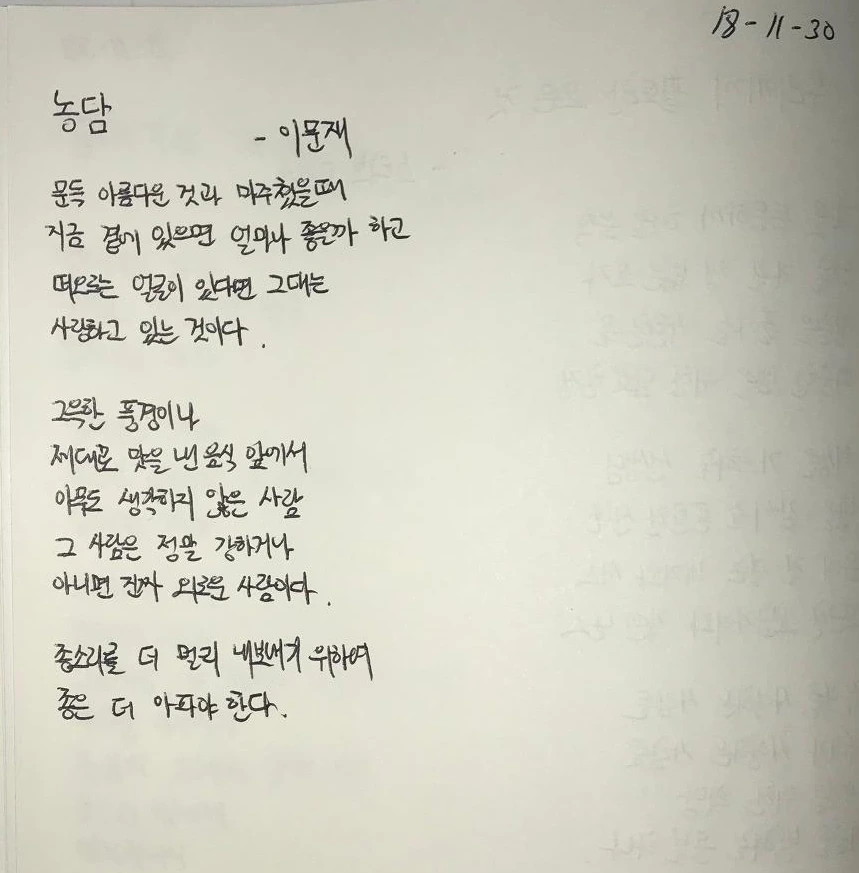 18-11-30
농담
- 이문재
문득 아름다운 것과 마주쳤을때
지금 곁에 있으면 얼마나 좋은까 하고
떠오르는 얼굴이 있다면 그대는
사랑하고 있는 것이다.
그윽한 풍경이나
제대로 맛을 낸 음식 앞에서
아무도 생각하지 않은 사람
그 사람은 정말 강하거나
아니면 진짜 외로운 사람이다.
종소리를 더 멀리 내보내기 위하여
종은 더 아파야 한다.